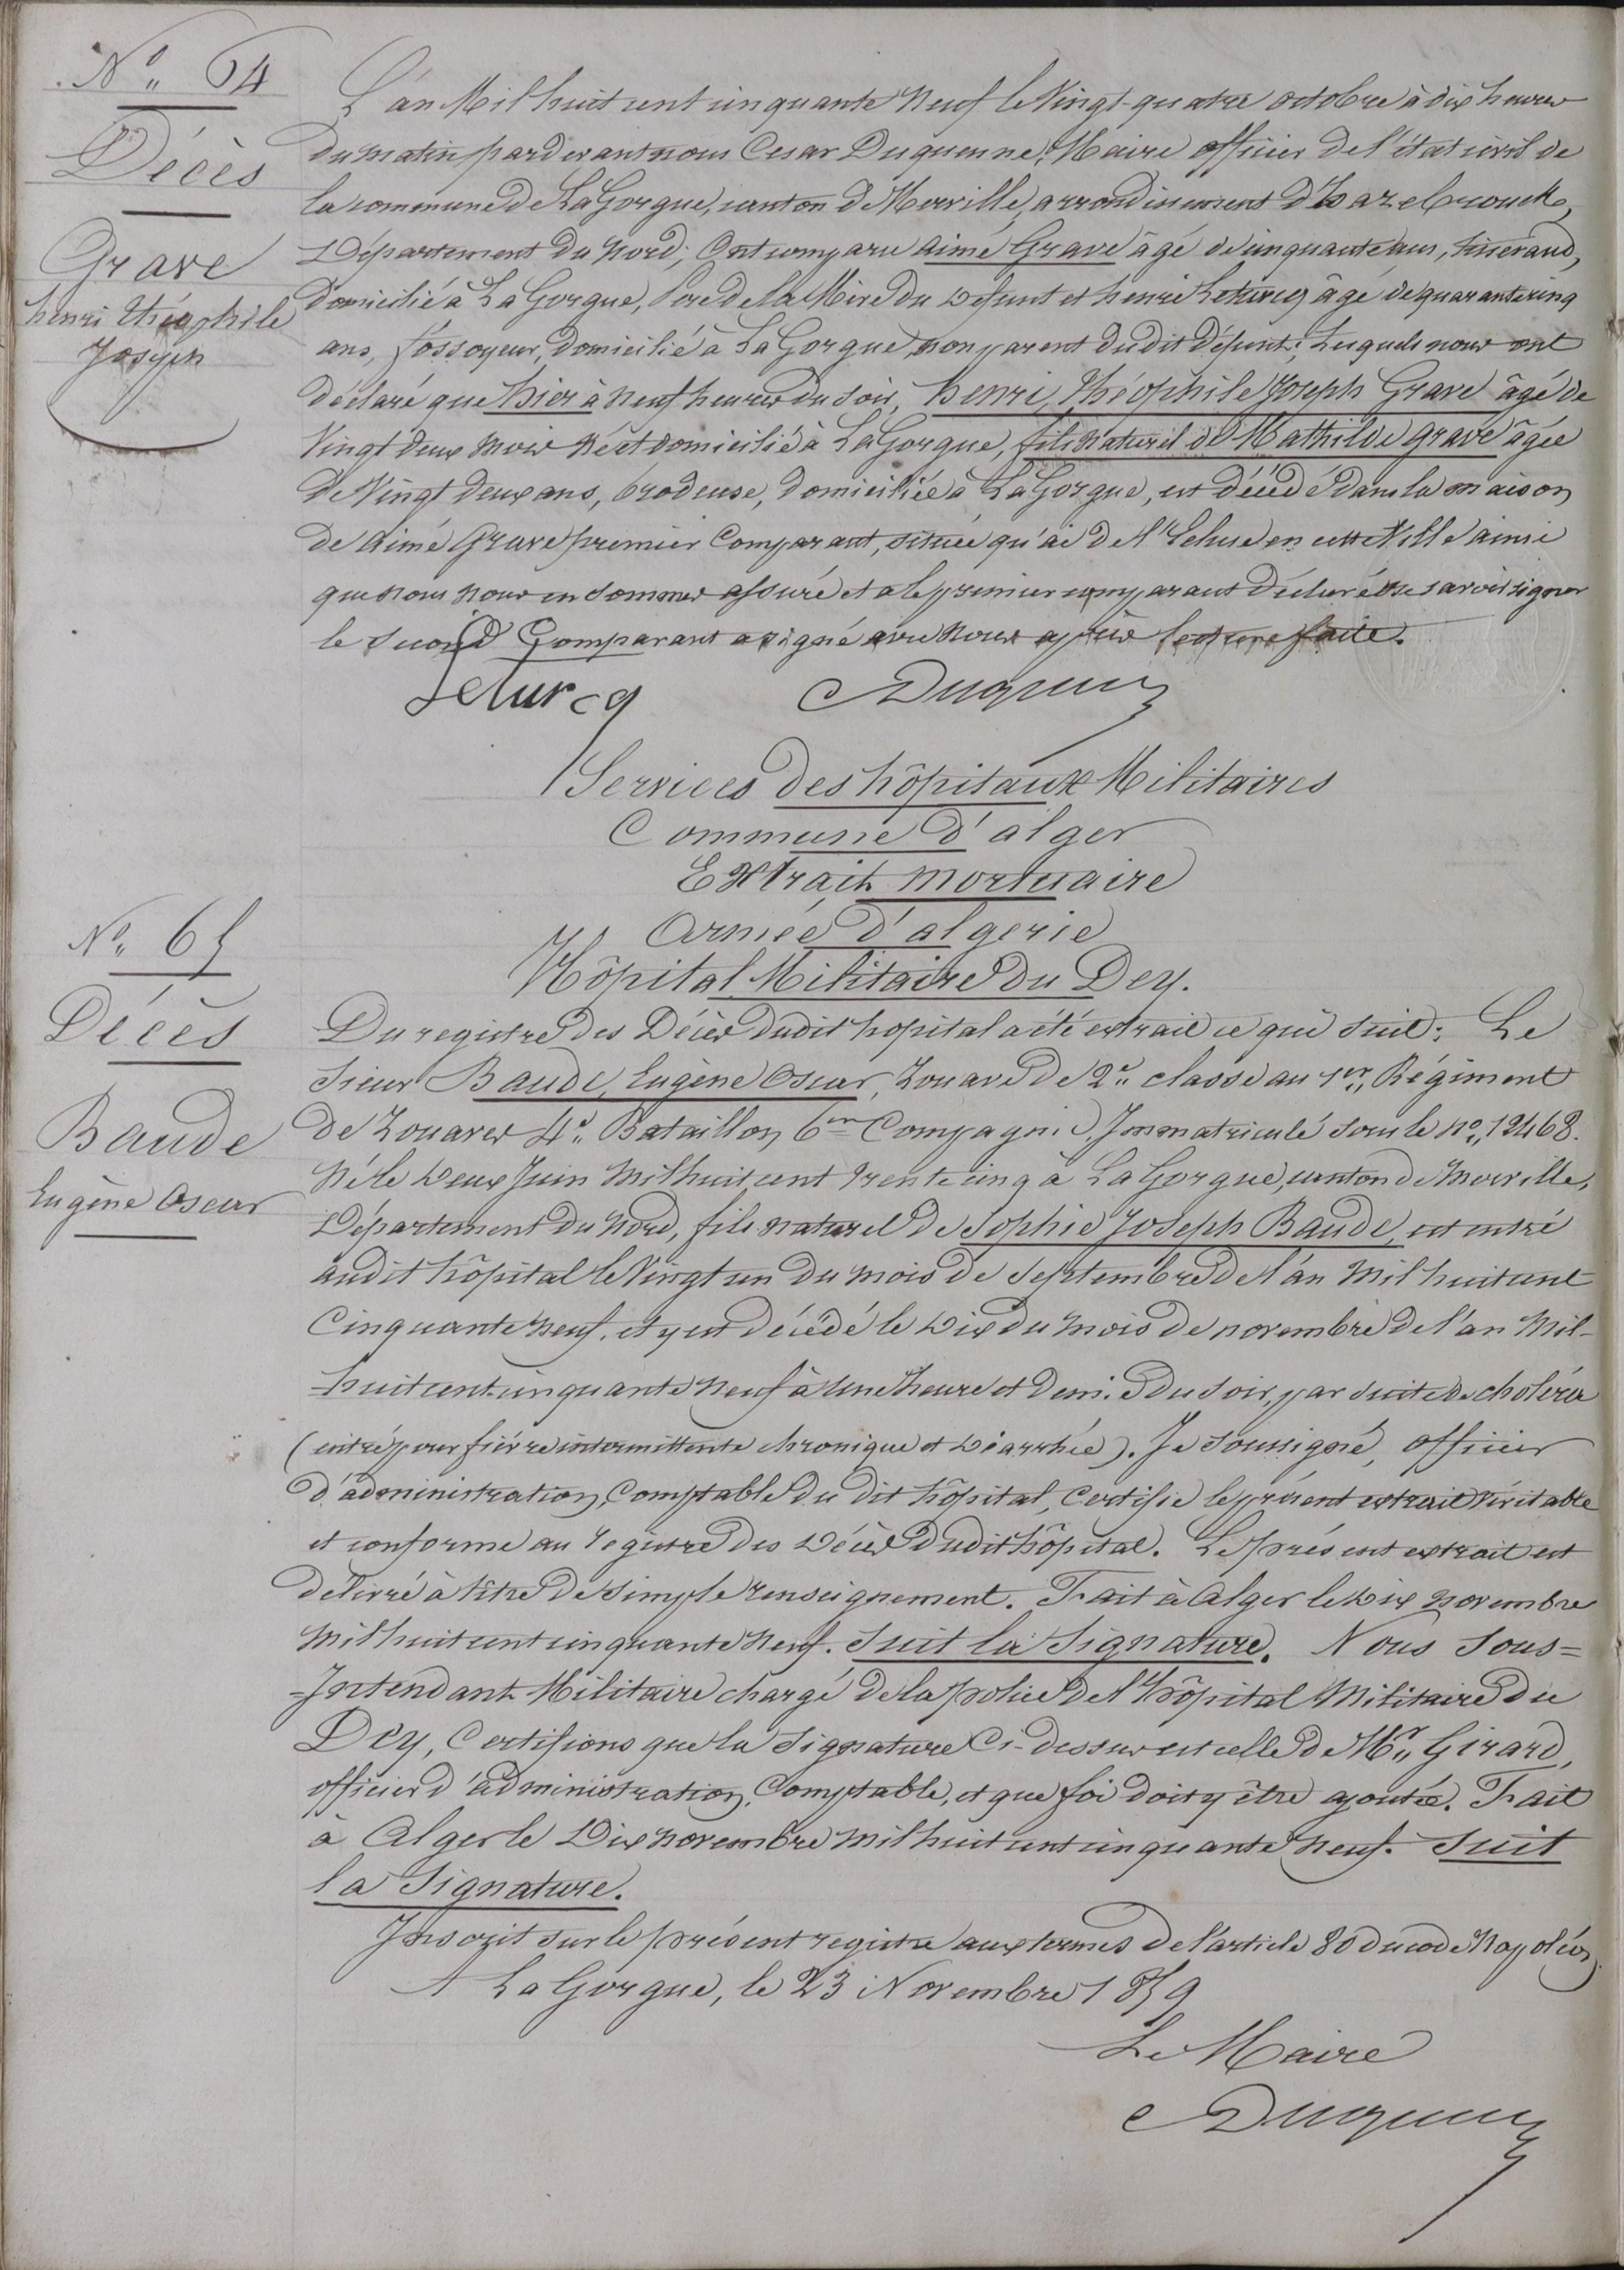 N° 64
Décès
Grave
henri théophile
Joseph
L'an Mil huit cent cinquante Neuf le Vingt-quatre octobre à dix heures
du matin pardevant nous Cesar Duquenne, Maire officier de l'état civil de
la commune de La Gorgue, canton de Merville, arrondissement d'hazebrouck,
Département du Nord; Ont comparu aimé Grave âgé de cinquante ans, tisserand,
domicilié à La Gorgue, Père de la Mère du défunt et henri Leturcq âgé de quarante cinq
ans, fossoyeur, domicilié à La Gorgue, non parent dudit défunt; Lesquels nous ont
déclaré que hier à neuf heures du soir, henri, théophile Joseph Grave âgé de
Vingt deux mois Né et domicilié à La Gorgue, fils naturel de Mathilde grave âgée
de Vingt deux ans, brodeuse, domiciliée à La Gorgue, est décédé dans la maison
de aimé Grave premier Comparant, située qu'ai de l'Ecluse en cette Ville ainsi
que nous nous en sommes assuré et a le premier comparant déclaré ne savoir signer
le second Comparant a signé avec nous après lecture faite.
Leturcq CDuquenne
Services des hôpitaux Militaires
Commune d'alger
Extrait mortuaire
Armée d'algerie
Hôpital Militaire du Dey.
N° 65
Décès
Baude
Eugène Oscar
Du registre des Décès dudit hopital a été extrait ce qui suit: Le
sieur Baude, Eugène Oscar, Zouave de 2e classe au 1er Régiment
de Zouaves 4e Bataillon, 6me Compagnie, Immatriculé sous le no 12468.
Né le deux Juin Mil huit cent trente cinq à La Gorgue, canton de Merville,
Département du Nord, fils naturel de Sophie Joseph Baude, est entré
audit hôpital le Vingt un du mois de septembre de l'an Mil huit cent
Cinquante neuf, et y est décédé le dix du mois de novembre de l'an Mil-
huit cent cinquante neuf à Une heure et demie du soir, par suite de choléra
(entré pour fièvre intermittente chronique et diarrhée). Je soussigné, officier
d'administration, Comptable du dit hôpital, Certifie le présent extrait véritable
et conforme au registre des décès dudit hôpital. Le présent extrait est
délivré à titre de simple renseignement. Fait à Alger le dix novembre
Mil huit cent cinquante neuf. Suit la Signature. Nous Sous=
=Intendant Militaire chargé de la police de l'hôpital Militaire du
Dey, Certifions que la signature Ci-dessus est celle de Mr Girard,
officier d'administration, Comptable, et que foi doit y être ajoutée. Fait
à Alger le Dix novembre Mil huit cent cinquante neuf. Suit
la Signature.
Inscrit sur le présent registre aux termes de l'article 80 du code Napoléon,
A La Gorgue, le 23 Novembre 1859
Le Maire
CDuquenne